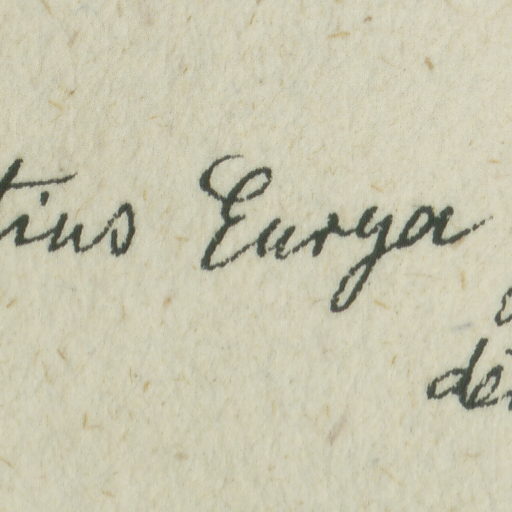 tius Eurya
de